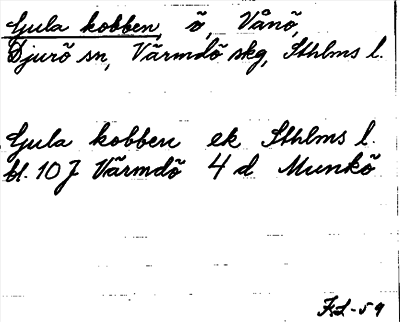 Gula kobben, ö, Vånö,
Djurö sn, Värmdö skg, Sthlms l.
Gula kobben ek Sthlms l.
bl. 10 J Värmdö 4 d Munkö
F.L-59